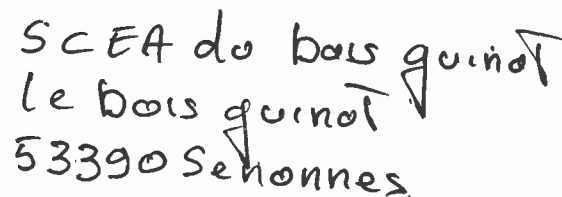 SCEA do bois guinot
le bois guinot
53390 Senonnes